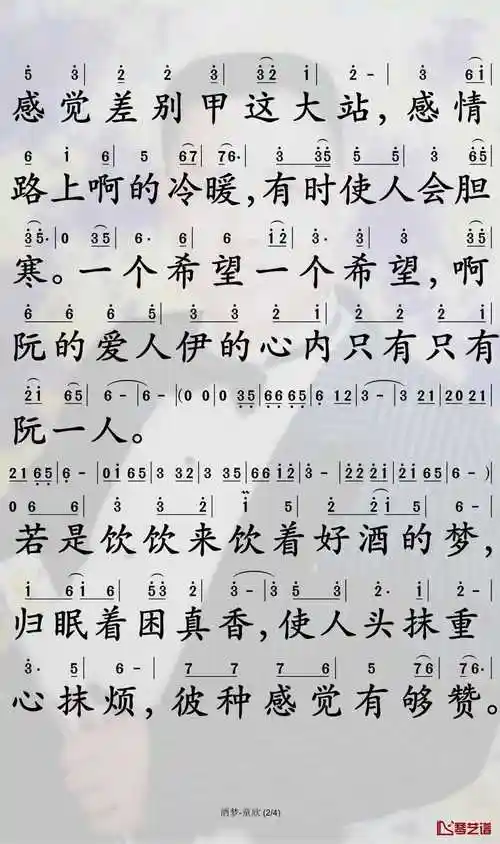 5 3| 2 2 3| 3 2 i| 2 -| 3 6 i|
感觉差别甲这大站,感情
6 i 6| 5 67| 76·| 3 35| 5 5| 3 65|
路上啊的冷暖,有时使人会胆
35·|0 35| 6· 6| 6 i2| 3· 3| 3 35|
寒。一个希望一个希望,啊
6 6 6 5| 3 3 2 i| 2 2 2 i|
阮的爱人伊的心内只有只有
2i 65| 6-| 6-|(0 0|0 35|66 65|6 12|3-|3 21|20 21|
阮一人。
21 65|6-|0i 65|3 32|3 35|66 i2|3-|22 2i|2i 65|6-)|
0 6 6| 3 3 2| i 5| 2 2 5| 6-|
若是饮饮来饮着好酒的梦,
i 6i| 6 53| 2| 3-|3 5 3| 2· i| 2-|
归眠着困真香,使人头抹重
3· 5| 6-| 7 7 7 6| 7 5 76|76·|
心抹烦,彼种感觉有够赞。
酒梦-童欣 (2/4)
琴艺谱